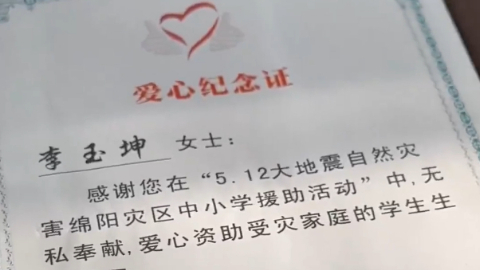 爱心纪念证
李玉坤 女士：
感谢您在“5.12大地震自然灾
害绵阳灾区中小学援助活动”中,无
私奉献,爱心资助受灾家庭的学生生